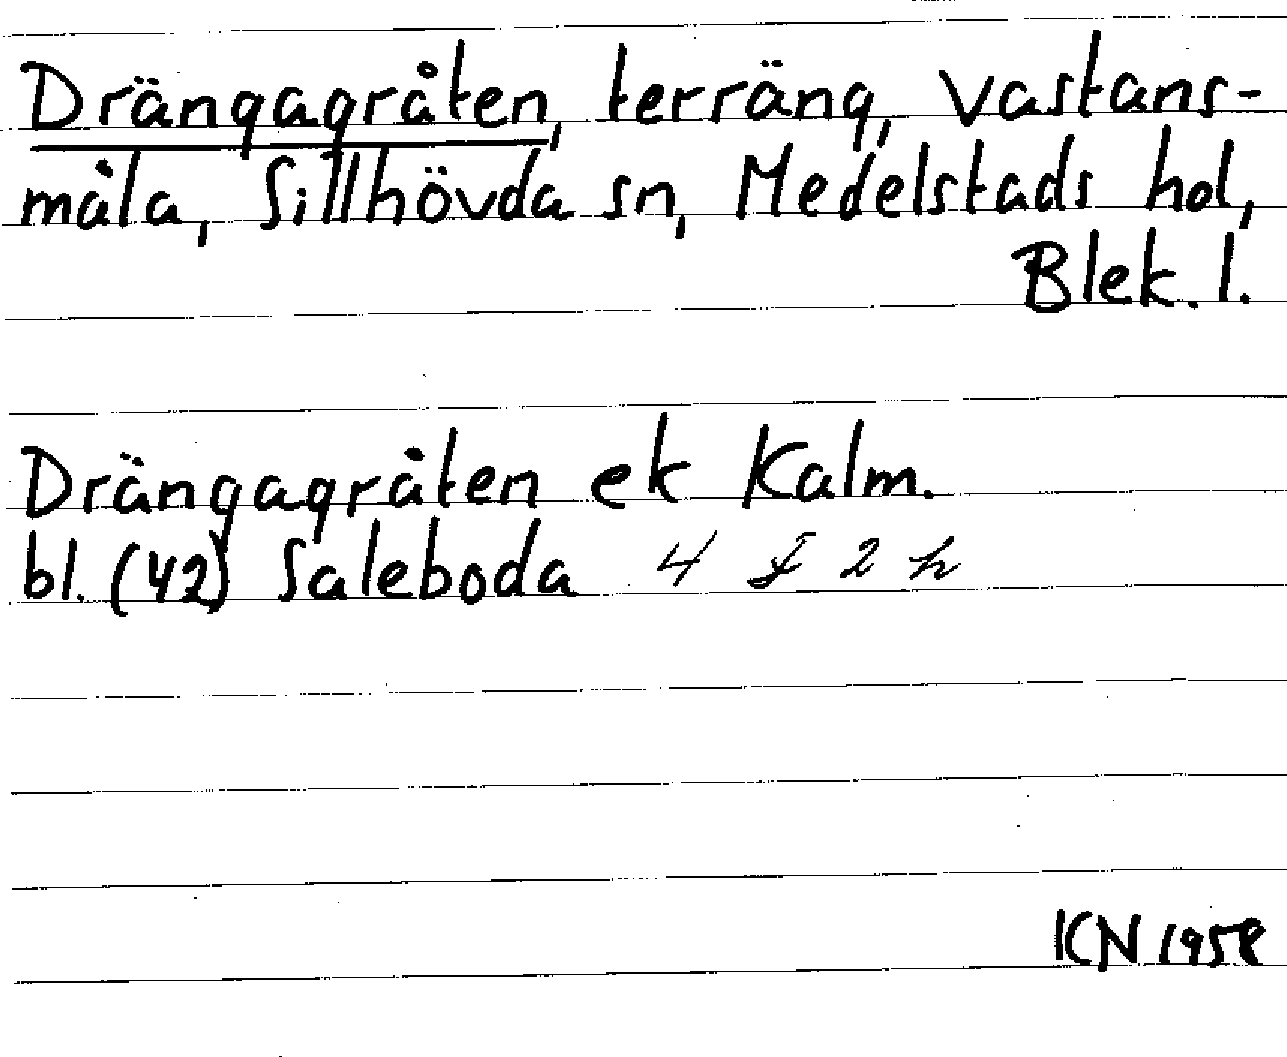 Drängagråten, terräng, Vastans-
måla, Sillhövda sn, Medelstads hd,
Blek. l.
Drängagråten ek Kalm.
bl. (42) Saleboda 4 F 2 h
KN 1958